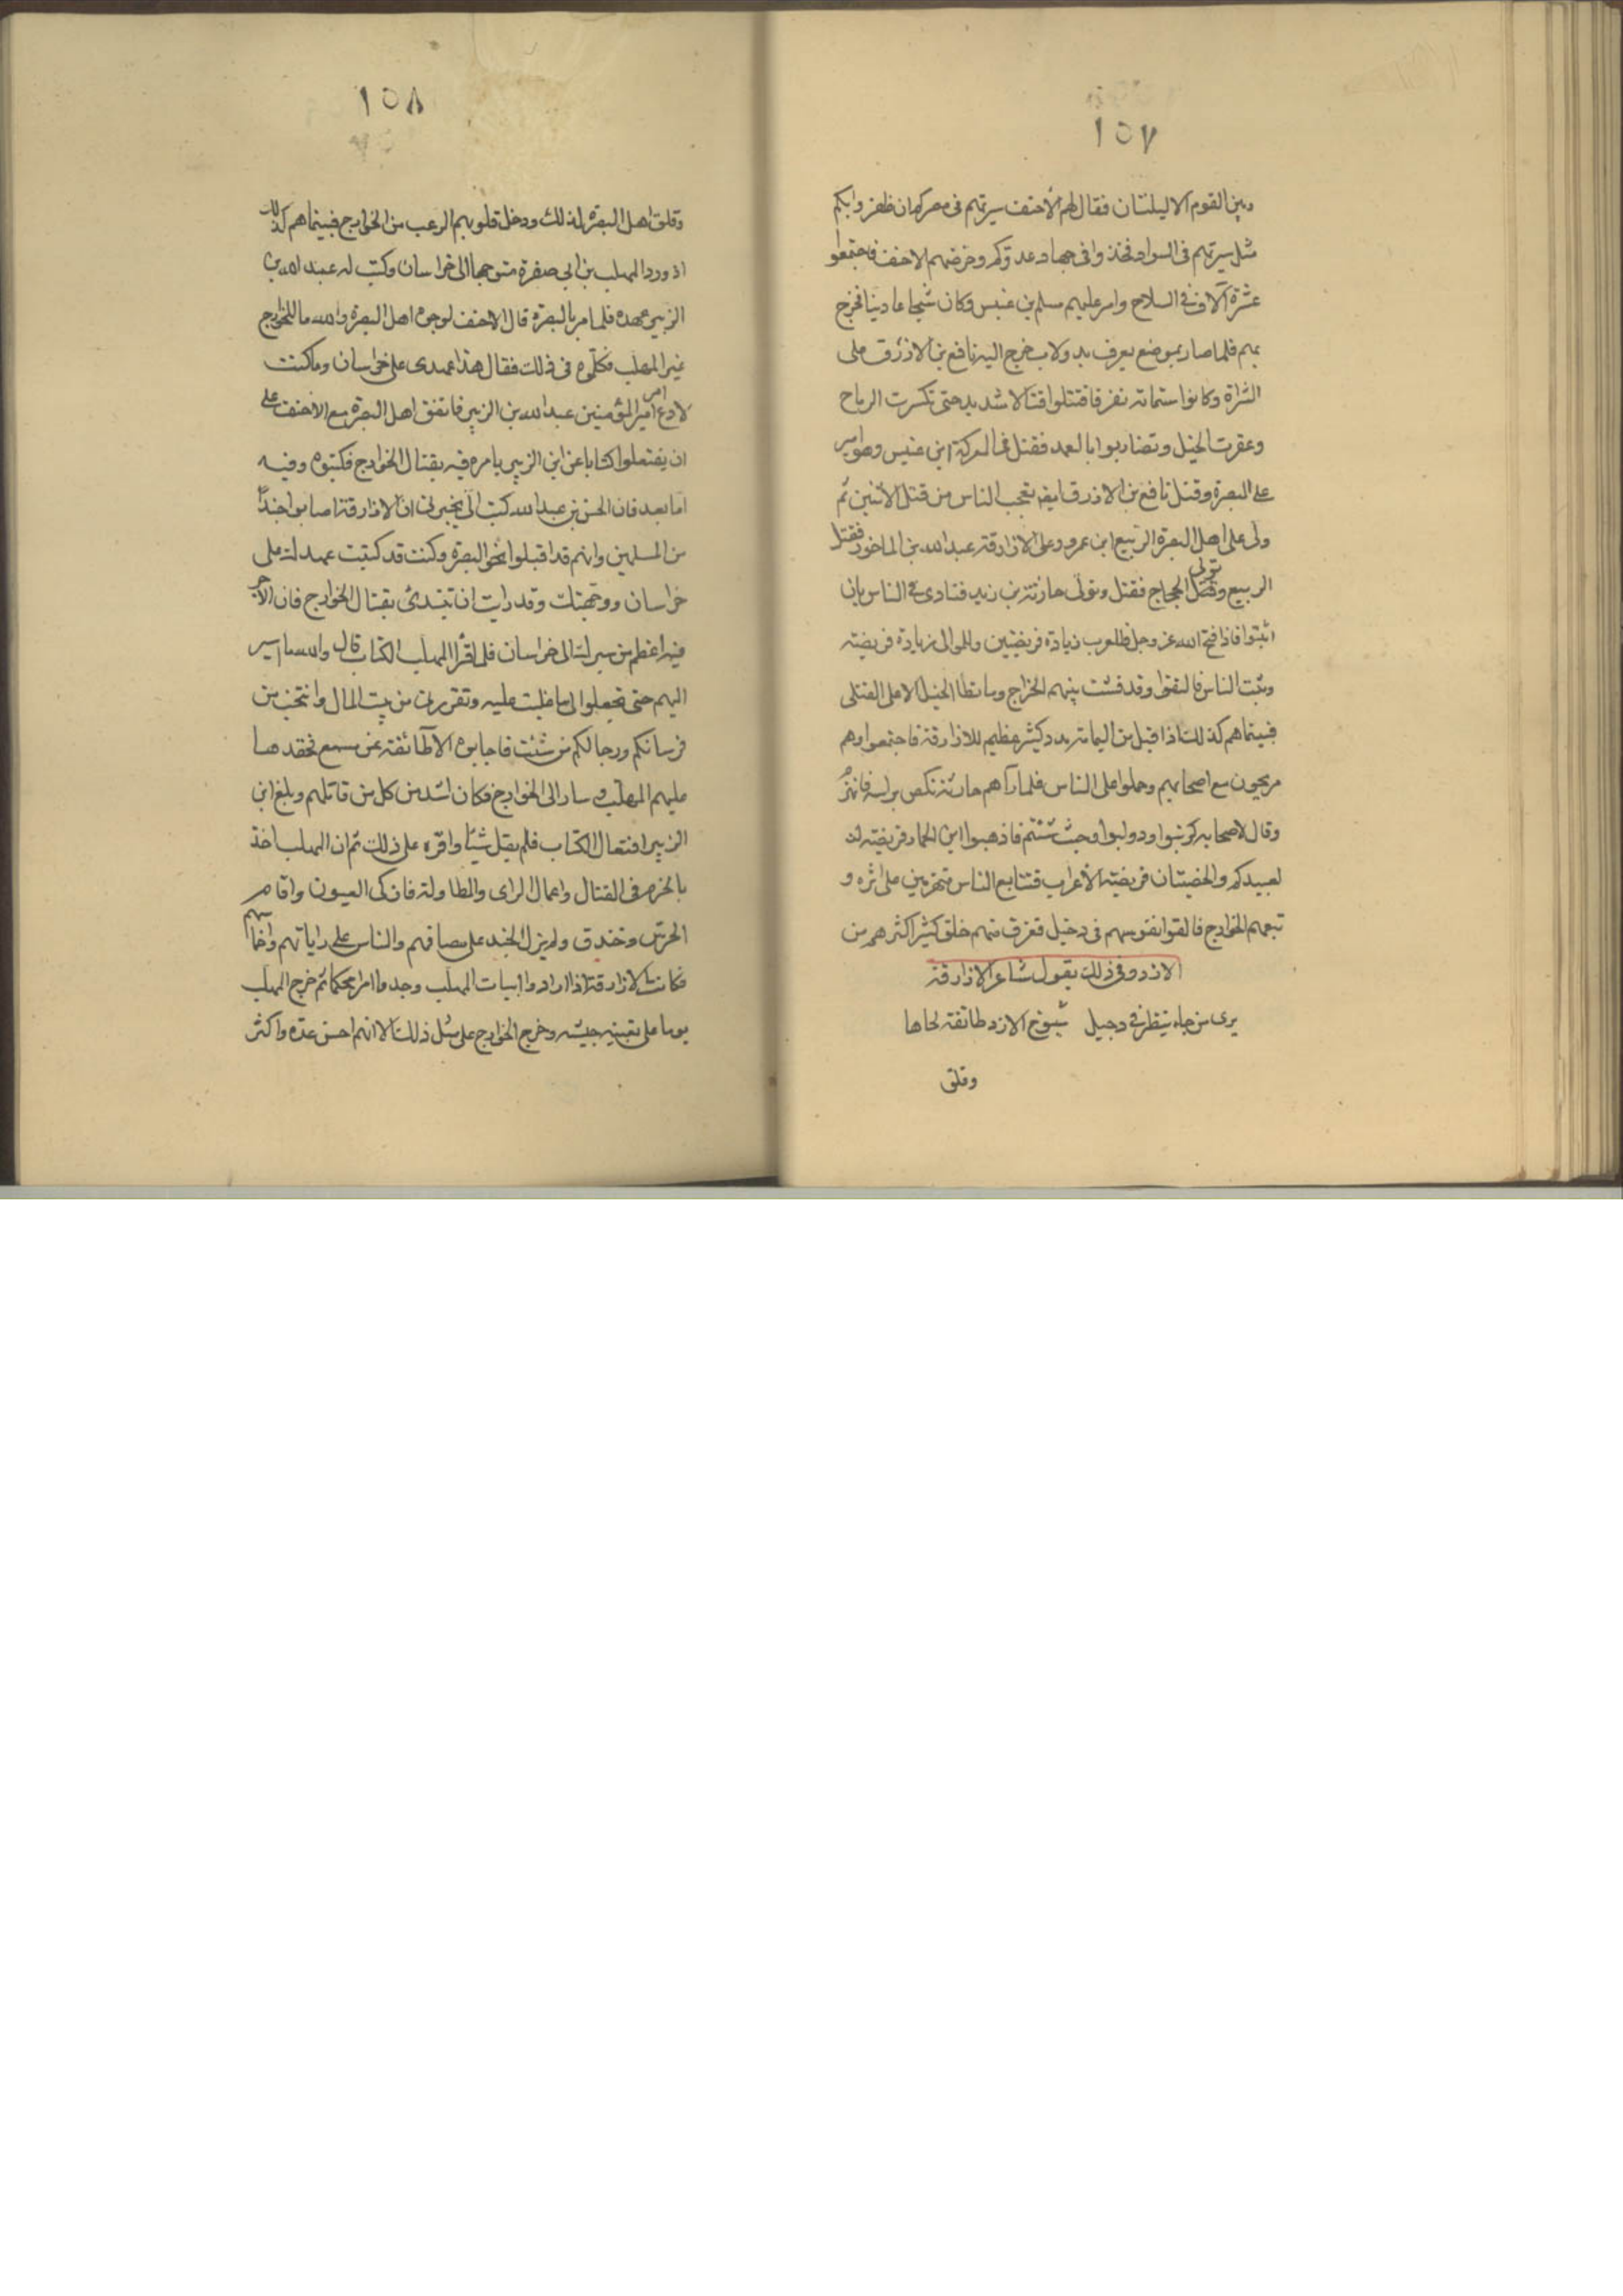 ١٥٧
وبين القوم الا ليلتان فقال لهم الاحنف سيرتهم فى مصركم ان ظفروا بكم
مثل سيرتهم فى السواد فخذوا فى جهاد عدوكم وحرضهم الاحنف فاجتمعوا
عشرة آلاف فى السلاح وامر عليهم مسلم بن عنبس وكان شجاعا دينا فخرج
بهم فلما صار بموضع يعرف بدولاب خرج اليه نافع بن الازرق على
الشراة وكانوا ستمائة نفر فاقتتلوا قتالا شديد حتى تكسرت الرماح
وعقرت الخيل وتضاربوا بالعمد فقتل فى المعركة ابن عنبس وهو امير
على البصرة وقتل نافع بن الازرق ايضا تعجب الناس من قتل الاثنين ثم
ولى على اهل البصرة الربيع ابن عمرو وعلى الازارقة عبد الله بن الماخور فقتل
الربيع وتولى الحجاج فقتل وتولى حارثة بن زيد فنادى فى الناس بان
اثبتوا فاذا فتح الله عز وجل فللعرب زيادة فريضتين وللموالى زيادة فريضة
وثبت الناس فالتقوا وقد فشت بينهم الجراح وما تطا الخيل الا على القتلى
فبينما هم كذلك اذ اقبل من اليمامة مدد كثير عظيم للازارقة فاجتمعوا وهم
مريحون مع اصحابهم وحملوا على الناس فلما رآهم حارثة نكص براسه فانهزم
وقال لاصحابه كرنبوا ودولبوا وحيث شئتم فاذهبوا اين الحمار فريضة لان
لعبيدكم والخصيتان فريضة الأعراب فتتابع الناس منهزمين على اثره و
تبعهم الخوارج فالقوا نفوسهم فى دجيل فغرق منهم خلق كثير اكثرهم من
الازد وفى ذلك يقول شاعر الازارقة
يرى من جاء ينظر فى دجيل شيوخ الازد طائفة لحاها
وقلق
١٥٨
وقلق اهل البصرة لذلك ودخل قلوبهم الرعب من الخوارج فبينما هم كذلك
اذ ورد المهلب بن ابى صفرة متوجها الى خراسان وكتب له عبد الله بن
الزبير عهده فلما مر بالبصرة قال الاحنف لوجوه اهل البصرة والله ما للخوارج
غير المهلب فكلموه فى ذلك فقال هذا عهدى على خراسان وما كنت
لادع امر امير المؤمنين عبد الله بن الزبير فاتفق اهل البصرة مع الاحنف على
ان يفتعلوا كتابا عن ابن الزبير يامره فيه بقتال الخوارج فكتبوه وفيه
اما بعد فان الحسن بن عبد الله كتب الى يخبرنى ان الازارقة اصابوا جندا
من المسلمين وانهم قد اقبلوا نحو البصرة وكنت قد كتبت عهد لك على
خراسان ووجهتك وقد رايت ان تبتدئ بقتال الخوارج فان الاجر
فيه اعظم من سيرك الى خراسان فلما قرأ المهلب الكتاب قال والله ما اسير
اليهم حتى تجعلوا الى ما غلبت عليه وتقررنى من بيت المال وانتخب من
فرسانكم ورجالكم من شئت فاجابوه الا طائفة عن مسمع فحقدها
عليهم المهلب وسار الى الخوارج فكان اشد من كل من قاتلهم وبلغ ابن
الزبير افتعال الكتاب فلم يقل شيئا واقره على ذلك ثم ان المهلب اخذ
بالحزم فى القتال واعمال الراى والمطاولة فاذكى العيون واقام
الحرس وخندق ولم يزل الجند على مصافهم والناس على راياتهم واخماسهم
فكانت الازارقة اذا ارادوا بيات المهلب وجدوا امرا محكما ثم خرج المهلب
يوما على تعبيه جيشه وخرج الخوارج على مثل ذلك الا انهم احسن عدة واكثر